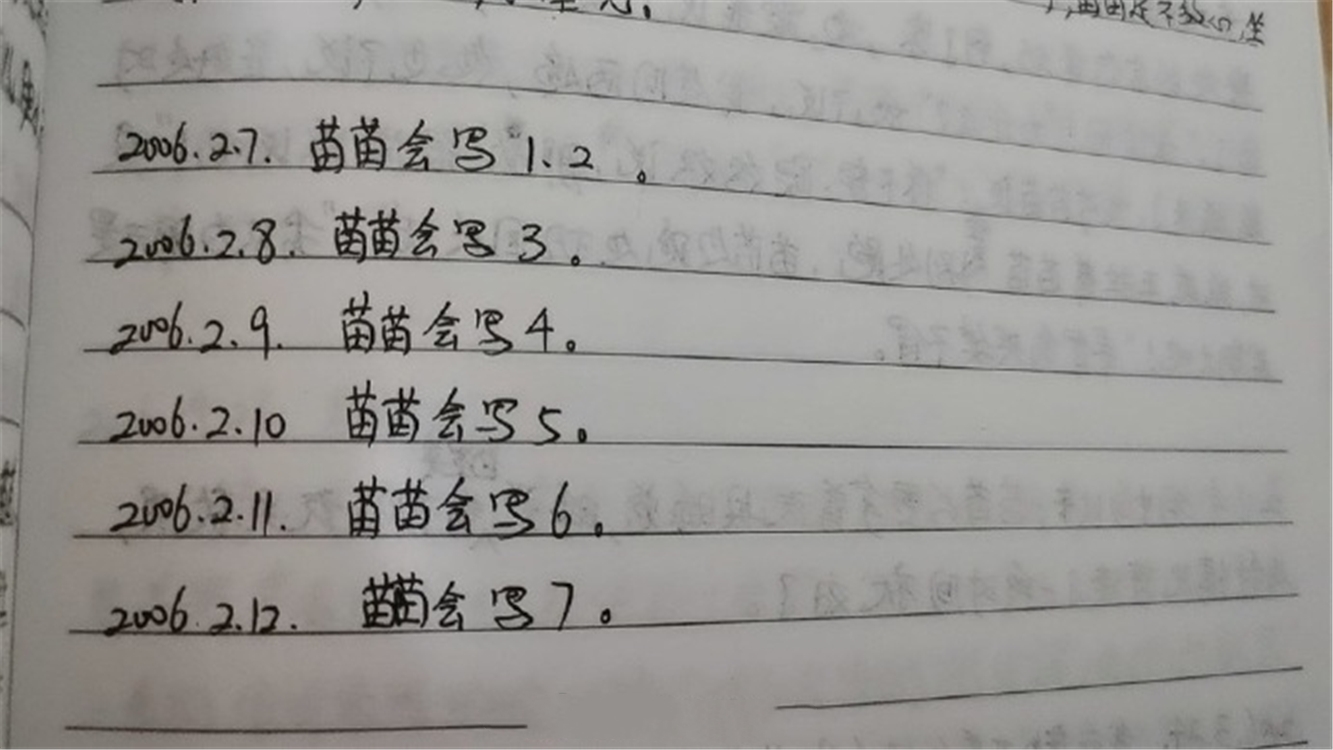 2006.2.7. 苗苗会写1、2。
2006.2.8. 苗苗会写3。
2006.2.9. 苗苗会写4。
2006.2.10 苗苗会写5。
2006.2.11. 苗苗会写6。
2006.2.12. 苗苗会写7。